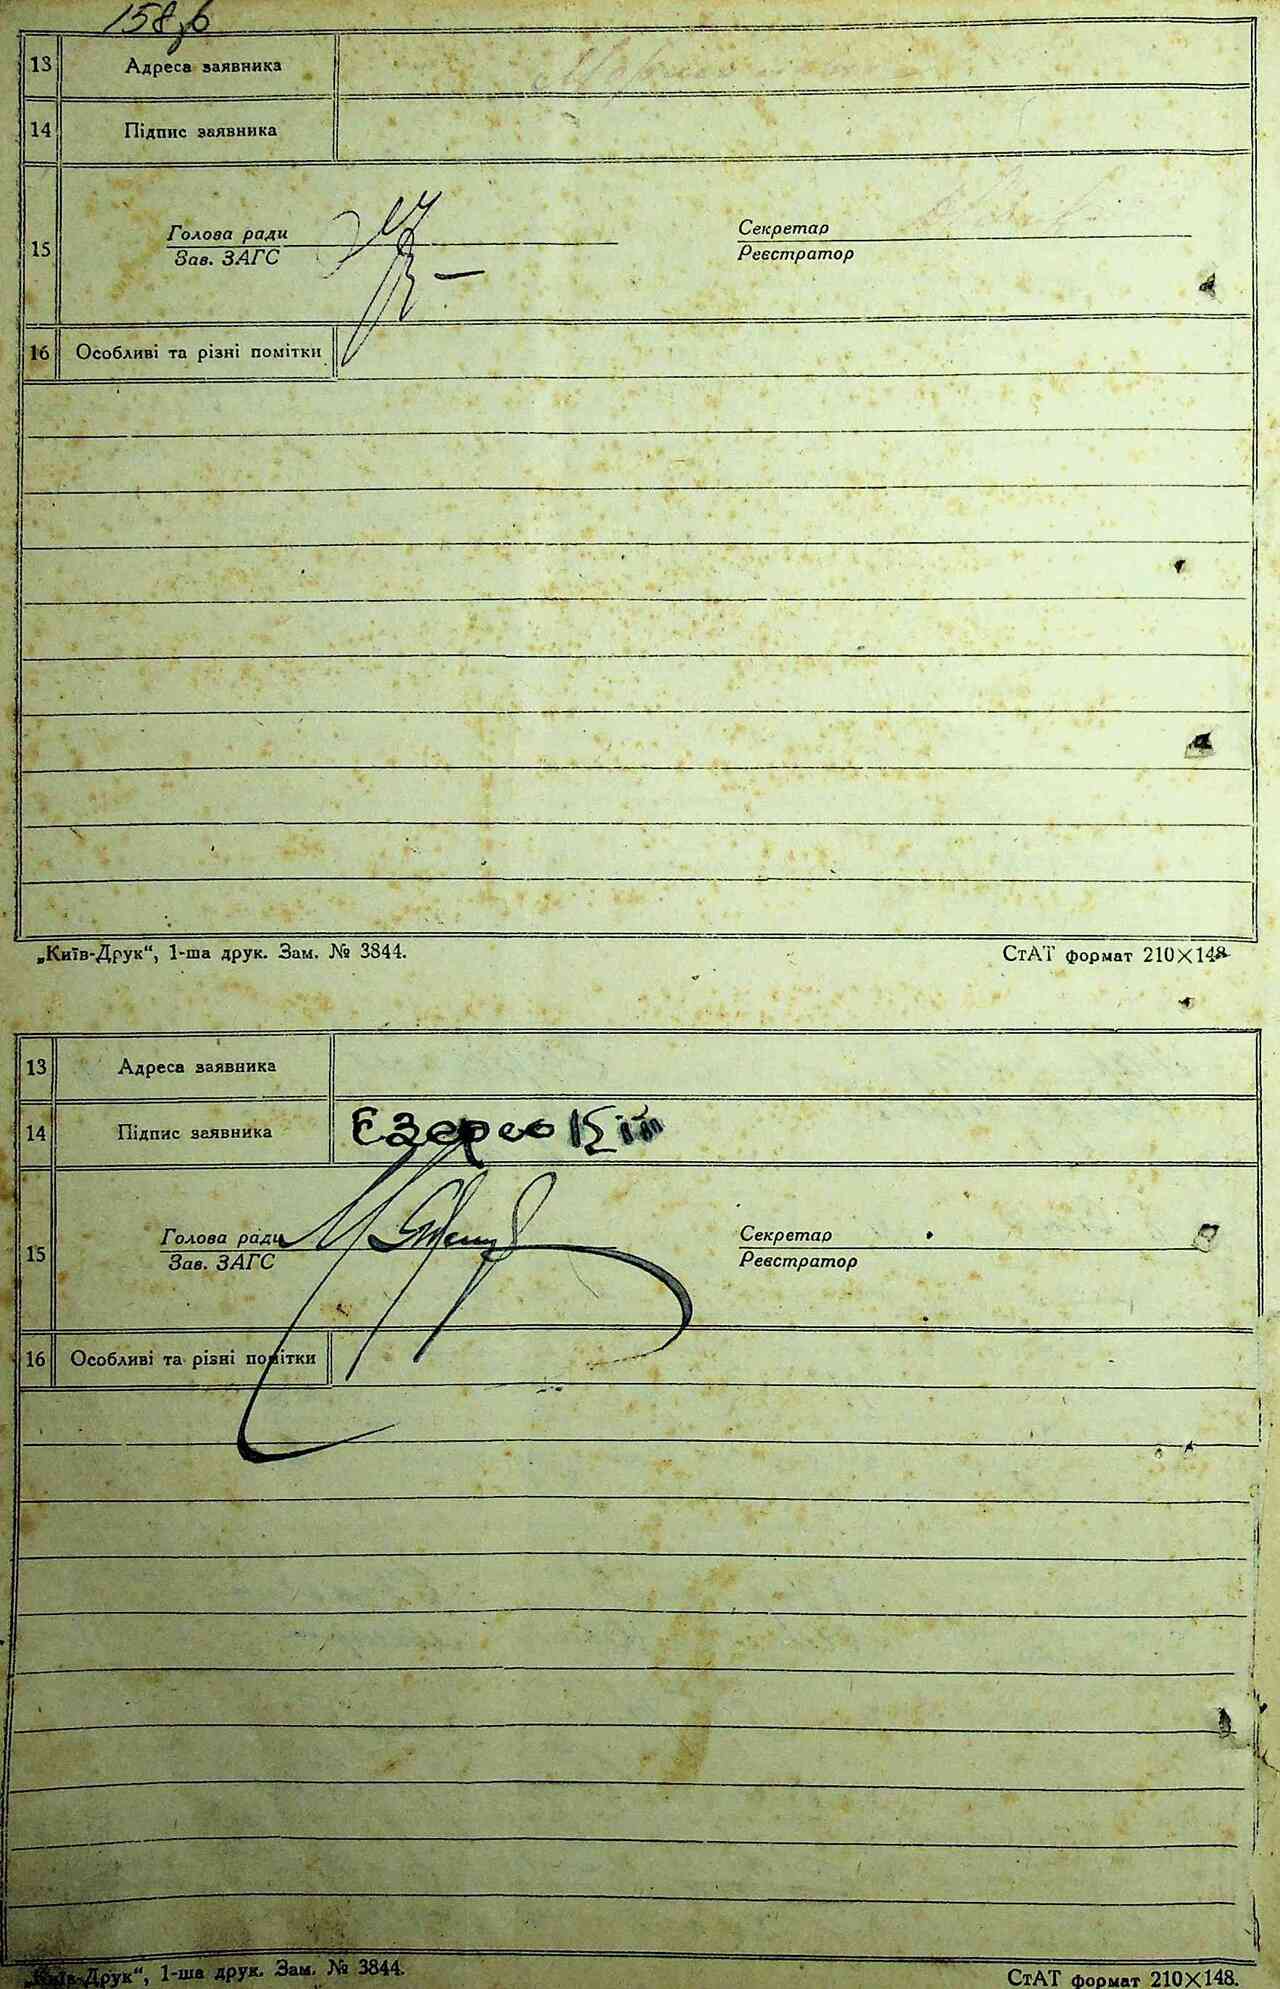 158зв
13 Адреса заявника
14 Підпис заявника
15 Голова ради Секретар
Зав. ЗАГС Реєстратор
16 Особливі та різні помітки
„Київ-Друк“, 1-ша друк. Зам. № 3844. СтАТ формат 210×148
13 Адреса заявника
14 Підпис заявника Єзерсокій
15 Голова ради Секретар
Зав. ЗАГС Реєстратор
16 Особливі та різні помітки
„Київ-Друк“, 1-ша друк. Зам. № 3844. СтАТ формат 210×148.